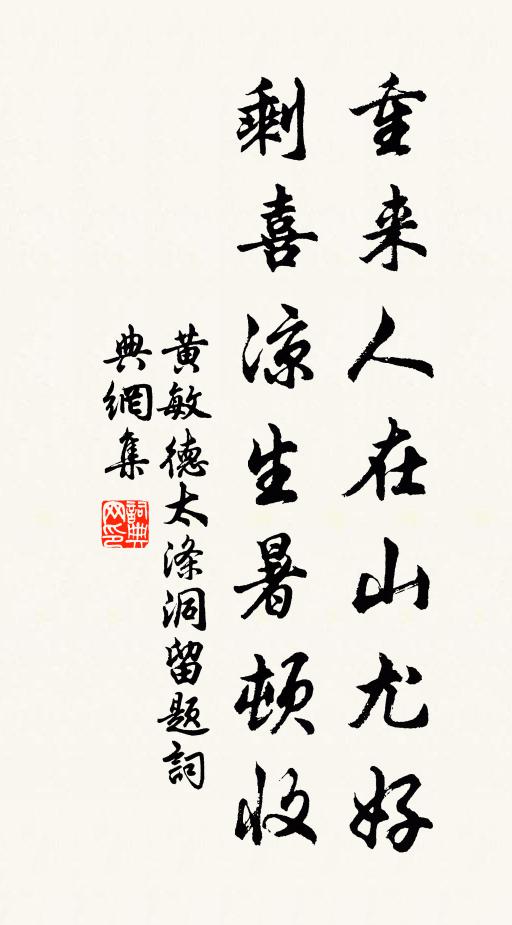 重来人在山尤好
剩喜凉生暑頓收
黄敏德太滌洞留題詞
典網集
詞典
网印